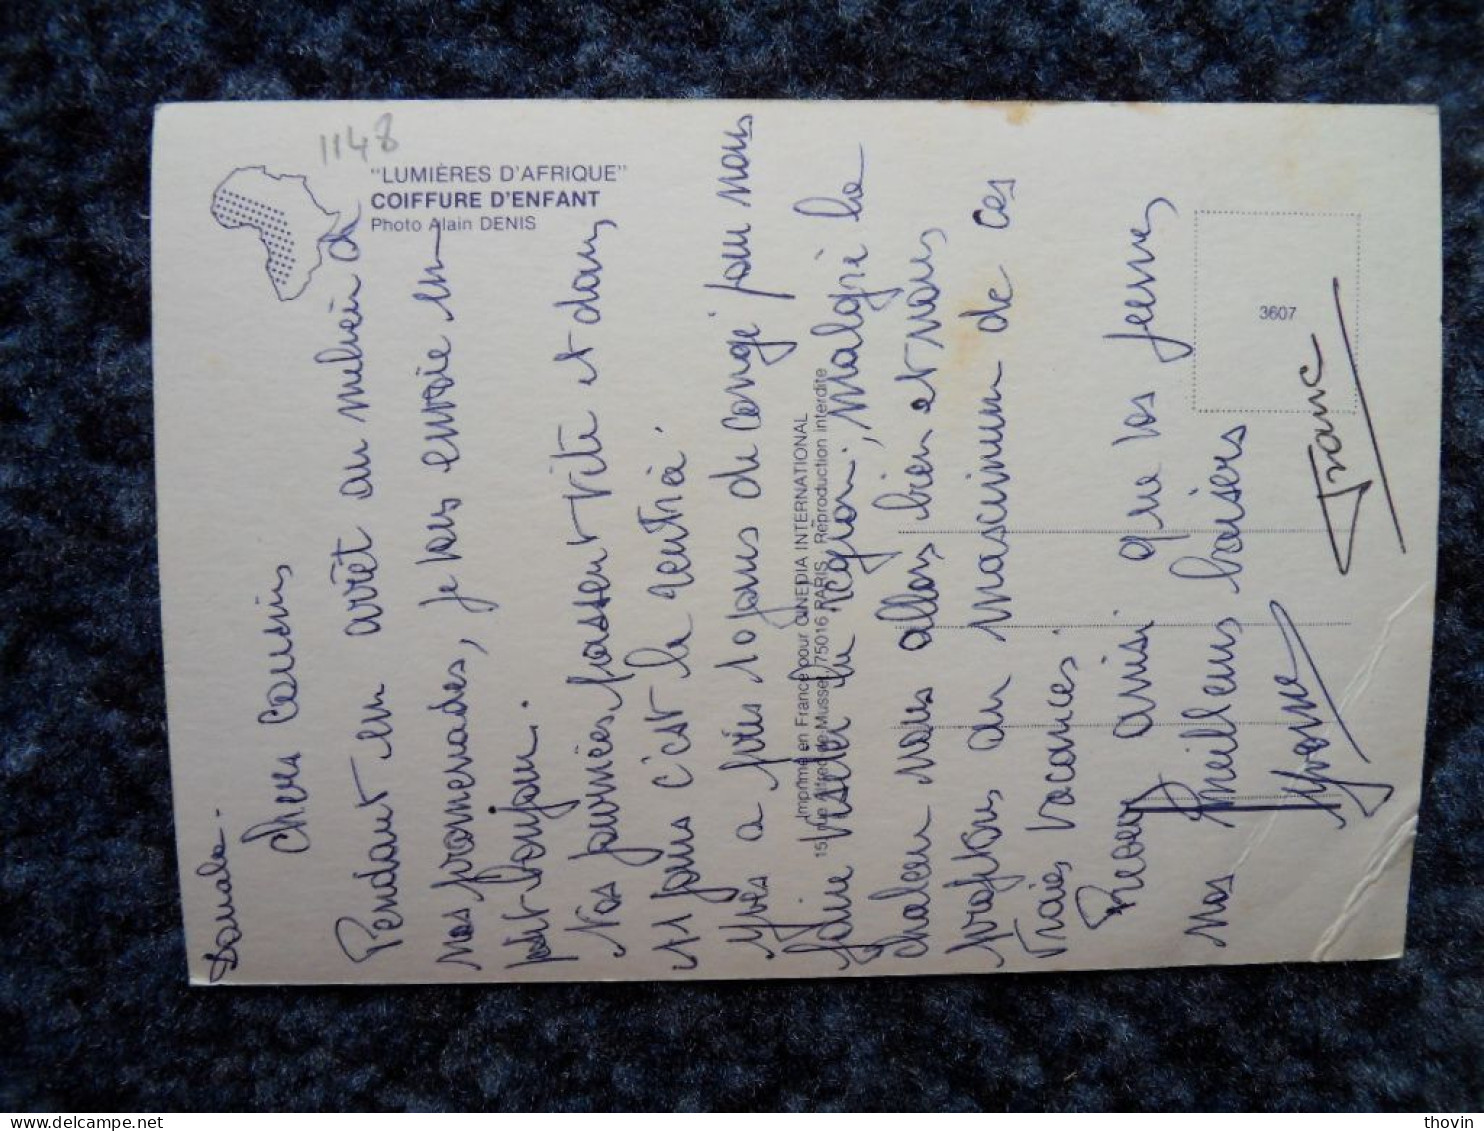 1148
"LUMIÈRES D'AFRIQUE"
COIFFURE D'ENFANT
Photo Alain DENIS
Douala.
Chers cousins
Pendant un arrêt au milieu de
nos promenades, je vous envoie un
petit bonjour.
Nos journées passent vite et dans
11 jours c'est la rentrée.
Yves a pris 10 jours de congé pour nous
faire visiter la région, Malgré la
chaleur nous allons bien et nous
profitons au maximum de ces
vraies vacances.
Recevez ainsi que les jeunes
nos meilleurs baisers
Yvonne
Franc
3607
Imprimé en France pour CINEDIA INTERNATIONAL
15, rue Alfred de Musset, 75016 PARIS Réproduction interdite
thovin